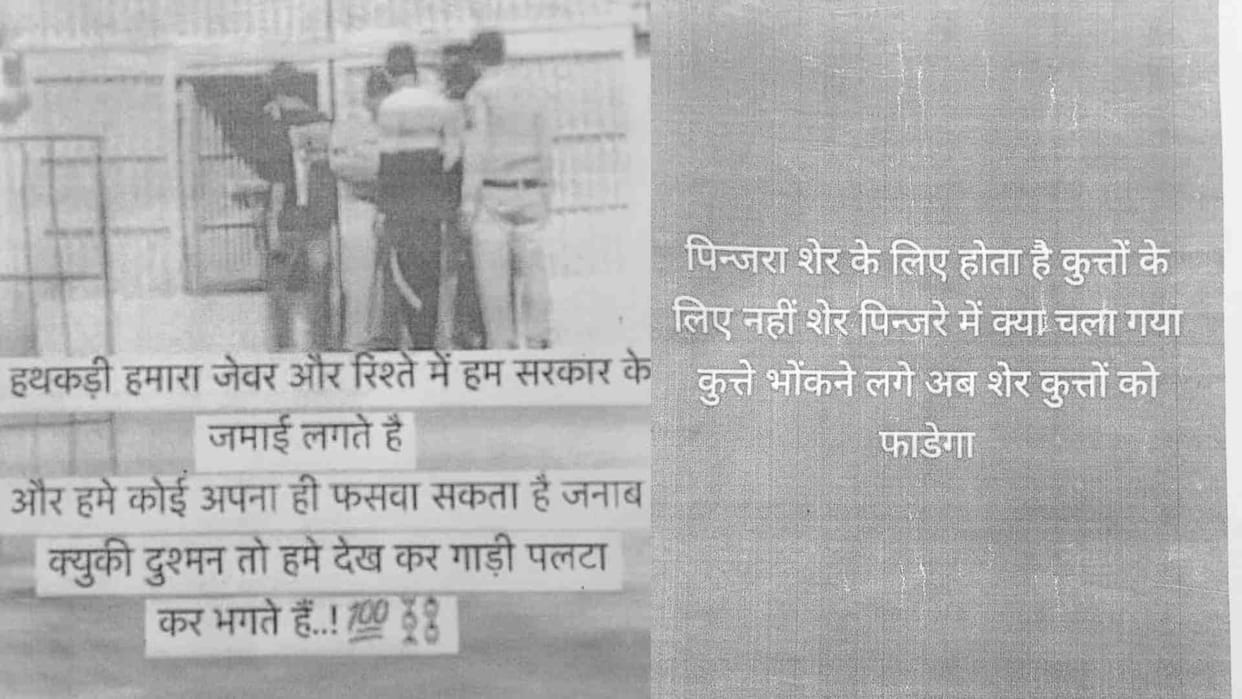 हथकड़ी हमारा जेवर और रिश्ते में हम सरकार के
जमाई लगते है
और हमे कोई अपना ही फसवा सकता है जनाब
क्युकी दुश्मन तो हमे देख कर गाड़ी पलटा
कर भगते हैं..! 💯 ⛓️
पिन्जरा शेर के लिए होता है कुत्तों के
लिए नहीं शेर पिन्जरे में क्या चला गया
कुत्ते भोंकने लगे अब शेर कुत्तों को
फाडेगा